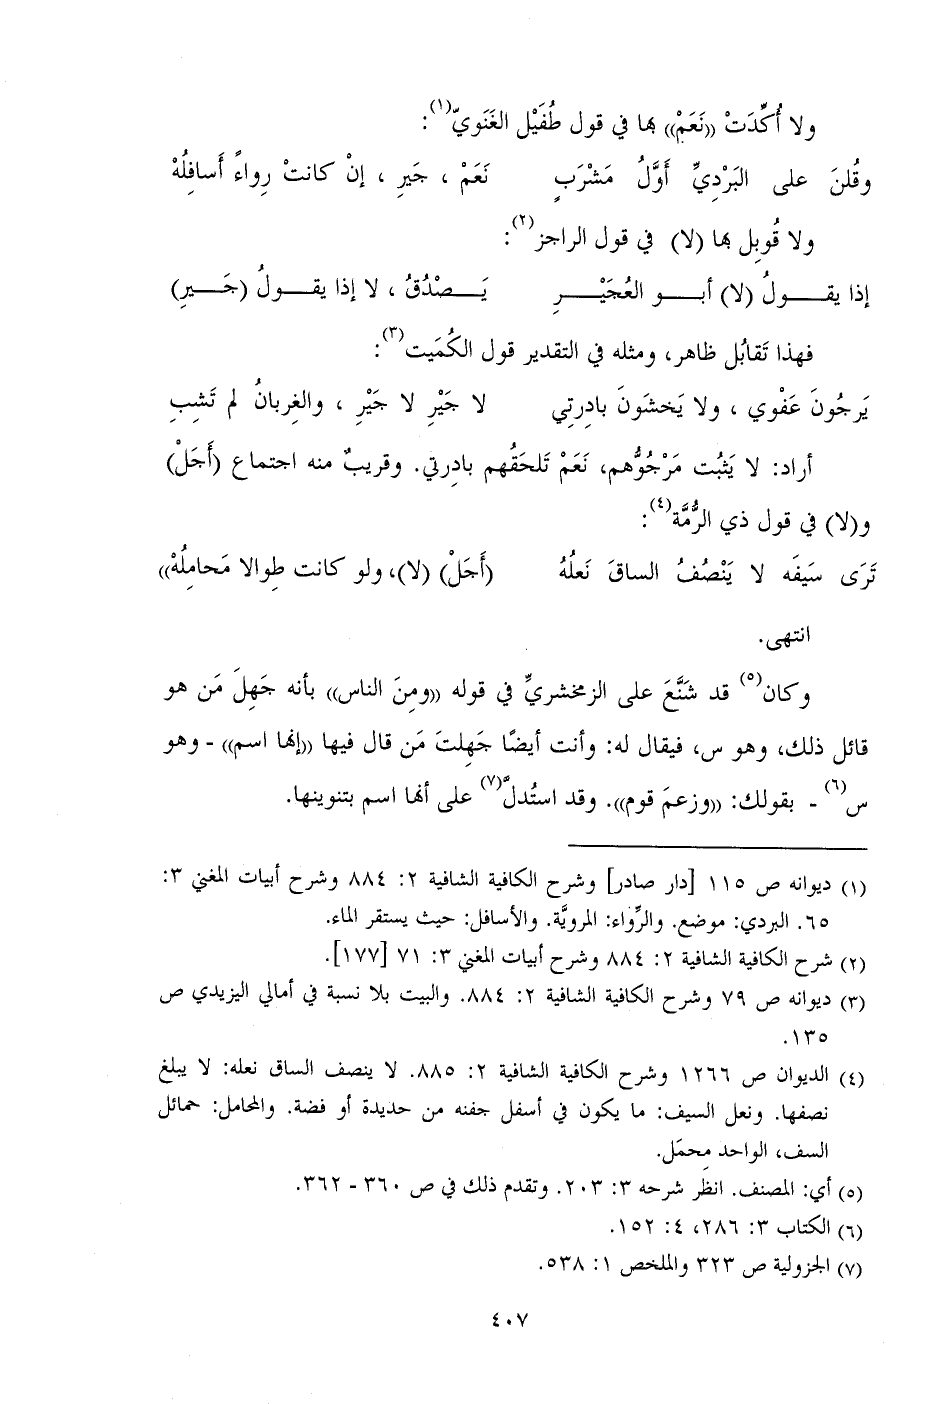 ولا أُكِّدَتْ «نَعَمْ» بها في قول طُفَيْل الغَنَويّ(١):
وقُلنَ على البَرْدِيِّ أَوَّلُ مَشْرَبٍ نَعَمْ ، جَيرِ ، إنْ كانتْ رِواءً أَسافِلُهْ
ولا قُوبِل بها (لا) في قول الراجز(٢):
إذا يقـولُ (لا) أبـو العُجَيْـرِ يَـصْدُقُ ، لا إذا يقـولُ (جَـيرِ)
فهذا تَقابُل ظاهر، ومثله في التقدير قول الكُمَيت(٣):
يَرجُونَ عَفْوي ، ولا يَخشَونَ بادِرتي لا جَيْرِ لا جَيْرِ ، والغِربانُ لم تَشِبِ
أراد: لا يَثبُت مَرْجُوُّهم، نَعَمْ تَلحَقُهم بادِرتي. وقريبٌ منه اجتماع (أَجَلْ)
و(لا) في قول ذي الرُّمَّة(٤):
تَرَى سَيفَه لا يَنْصُفُ الساقَ نَعلُهُ (أَجَلْ) (لا)، ولو كانت طِوالا مَحامِلُهْ»
انتهى.
وكان(٥) قد شَنَّعَ على الزمخشريِّ في قوله «ومِنَ الناس» بأنه جَهِلَ مَن هو
قائل ذلك، وهو س، فيقال له: وأنت أيضًا جَهِلتَ مَن قال فيها «إنها اسم» - وهو
س(٦) - بقولك: «وزعمَ قوم». وقد استُدلَّ(٧) على أنها اسم بتنوينها.
(١) ديوانه ص ١١٥ [دار صادر] وشرح الكافية الشافية ٢: ٨٨٤ وشرح أبيات المغني ٣:
٦٥. البردي: موضع. والرِّواء: المرويَّة. والأسافل: حيث يستقر الماء.
(٢) شرح الكافية الشافية ٢: ٨٨٤ وشرح أبيات المغني ٣: ٧١ [١٧٧].
(٣) ديوانه ص ٧٩ وشرح الكافية الشافية ٢: ٨٨٤. والبيت بلا نسبة في أمالي اليزيدي ص
١٣٥.
(٤) الديوان ص ١٢٦٦ وشرح الكافية الشافية ٢: ٨٨٥. لا ينصف الساق نعله: لا يبلغ
نصفها. ونعل السيف: ما يكون في أسفل جفنه من حديدة أو فضة. والمحامل: حمائل
السف، الواحد مِحمَل.
(٥) أي: المصنف. انظر شرحه ٣: ٢٠٣. وتقدم ذلك في ص ٣٦٠ - ٣٦٢.
(٦) الكتاب ٣: ٢٨٦، ٤: ١٥٢.
(٧) الجزولية ص ٣٢٣ والملخص ١: ٥٣٨.
٤٠٧